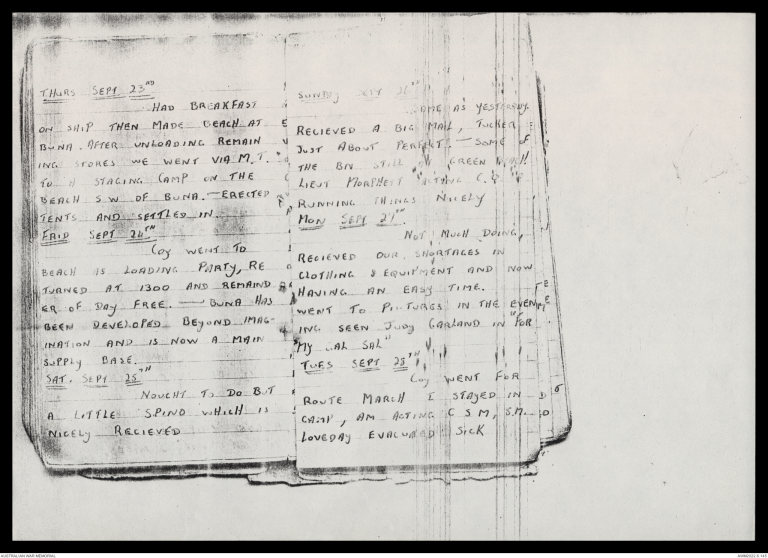 THURS SEPT 23RD
HAD BREAKFAST
ON SHIP THEN MADE BEACH AT
BUNA. AFTER UNLOADING REMAIN
ING STORES WE WENT VIA M.T.
TO A STAGING CAMP ON THE
BEACH S W OF BUNA. — ERECTED
TENTS AND SETTLED IN.
FRID SEPT 24TH
COY WENT TO
BEACH IS LOADING PARTY, RE
TURNED AT 1300 AND REMAIND
ER OF DAY FREE. — BUNA HAS
BEEN DEVELOPED BEYOND IMAG-
INATION AND IS NOW A MAIN
SUPPLY BASE.
SAT. SEPT 25TH
NOUGHT TO DO BUT
A LITTLE SPINO WHICH IS
NICELY RECIEVED
SUNDAY SEPT 26TH
SAME AS YESTERDAY.
RECIEVED A BIG MAIL, TUCKER
JUST ABOUT PERFECT. — SOME OF
THE BN STILL GREEN
LIEUT MORPHETT ACTING C.O.
RUNNING THINGS NICELY
MON SEPT 27TH
NOT MUCH DOING,
RECIEVED OUR SHORTAGES IN
CLOTHING & EQUIPMENT AND NOW
HAVING AN EASY TIME.
WENT TO PICTURES IN THE EVEN
ING SEEN JUDY GARLAND IN "FOR
MY GAL SAL"
TUES SEPT 28TH
COY WENT FOR
ROUTE MARCH I STAYED IN
CAMP, AM ACTING C S M, S.M.
LOVEDAY EVACUATED SICK
AUSTRALIAN WAR MEMORIAL